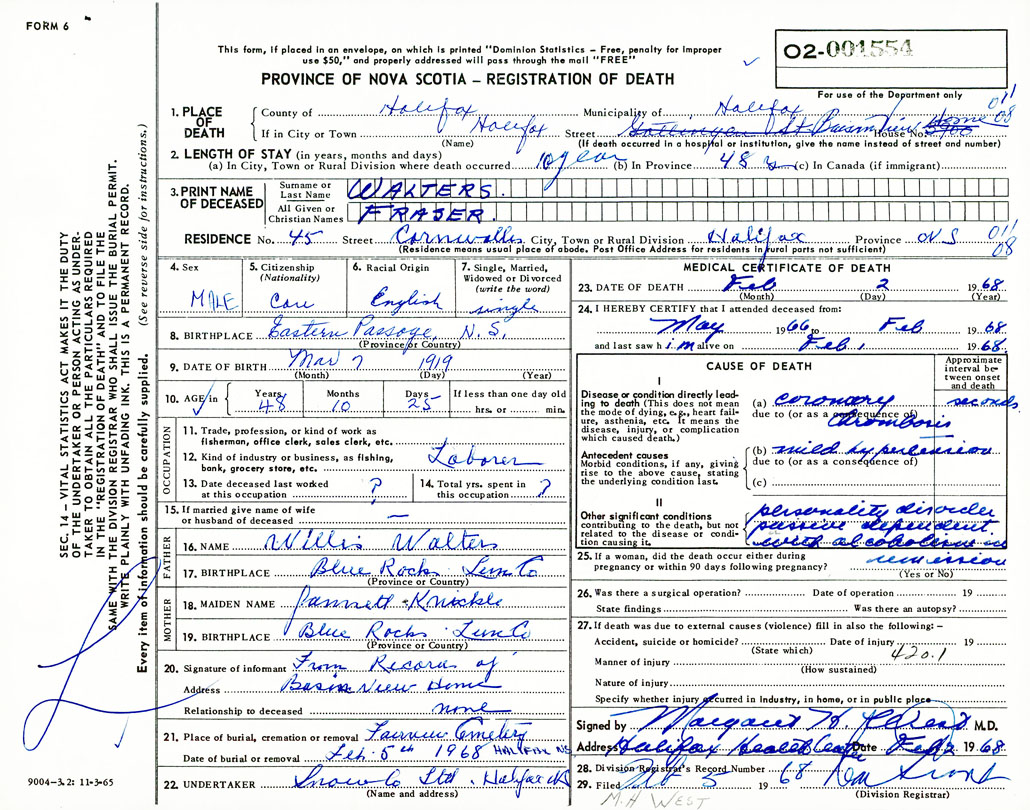 FORM 6
This form, if placed in an envelope, on which is printed "Dominion Statistics – Free, penalty for improper
use $50," and properly addressed will pass through the mail "FREE"
02-001554
PROVINCE OF NOVA SCOTIA – REGISTRATION OF DEATH
For use of the Department only
011
08
1. PLACE OF DEATH
County of Halifax Municipality of Halifax
If in City or Town Halifax Street Gottingen St Basin View Home House No. 5700
(Name) (If death occurred in a hospital or institution, give the name instead of street and number)
2. LENGTH OF STAY (in years, months and days)
(a) In City, Town or Rural Division where death occurred 10 year (b) In Province 48 y (c) In Canada (if immigrant)
3. PRINT NAME OF DECEASED
Surname or Last Name WALTERS.
All Given or Christian Names FRASER.
RESIDENCE No. 45 Street Cornwallis City, Town or Rural Division Halifax Province NS
(Residence means usual place of abode. Post Office Address for residents in rural parts not sufficient)
011
08
4. Sex MALE
5. Citizenship (Nationality) Can
6. Racial Origin English
7. Single, Married, Widowed or Divorced (write the word) single
8. BIRTHPLACE Eastern Passage, N.S.
(Province or Country)
9. DATE OF BIRTH Mar 7 1919
(Month) (Day) (Year)
10. AGE in Years 48 Months 10 Days 25 If less than one day old
hrs. or min.
OCCUPATION
11. Trade, profession, or kind of work as
fisherman, office clerk, sales clerk, etc.
12. Kind of industry or business, as fishing, Laborer
bank, grocery store, etc.
13. Date deceased last worked at this occupation ?
14. Total yrs. spent in this occupation ?
15. If married give name of wife
or husband of deceased —
FATHER
16. NAME Willis Walters
17. BIRTHPLACE Blue Rocks Lun Co
(Province or Country)
MOTHER
18. MAIDEN NAME Jannett Knickle
19. BIRTHPLACE Blue Rocks Lun Co
(Province or Country)
20. Signature of informant From Records of
Address Basin View Home
Relationship to deceased none
21. Place of burial, cremation or removal Fairview Cemetery
Date of burial or removal Feb. 5th 1968 HALIFAX NS
22. UNDERTAKER Snow Co Ltd. Halifax NS
(Name and address)
MEDICAL CERTIFICATE OF DEATH
23. DATE OF DEATH Feb 2 1968
(Month) (Day) (Year)
24. I HEREBY CERTIFY that I attended deceased from:
May 1966 to Feb 1968
and last saw him alive on Feb 1 1968
CAUSE OF DEATH
Approximate interval between onset and death
I
Disease or condition directly leading to death (This does not mean the mode of dying, e.g., heart failure, asthenia, etc. It means the disease, injury, or complication which caused death.)
(a) coronary seconds
due to (or as a consequence of) thrombosis
Antecedent causes
Morbid conditions, if any, giving rise to the above cause, stating the underlying condition last.
(b) mild hypertension
due to (or as a consequence of)
(c)
II
Other significant conditions contributing to the death, but not related to the disease or condition causing it.
personality disorder
passive dependent
with alcoholism in
remission
25. If a woman, did the death occur either during
pregnancy or within 90 days following pregnancy?
(Yes or No)
26. Was there a surgical operation? Date of operation 19
State findings Was there an autopsy?
27. If death was due to external causes (violence) fill in also the following: –
Accident, suicide or homicide? Date of injury 19
(State which) 420.1
Manner of injury
(How sustained)
Nature of injury
Specify whether injury occurred in Industry, in home, or in public place
Signed by Margaret H. M.D.
Address Halifax Health Centre Date Feb 2 1968
28. Division Registrar's Record Number
29. Filed Feb 5 19 68
(Division Registrar)
M.H WEST
SEC. 14 – VITAL STATISTICS ACT MAKES IT THE DUTY
OF THE UNDERTAKER OR PERSON ACTING AS UNDER-
TAKER TO OBTAIN ALL THE PARTICULARS REQUIRED
IN THE "REGISTRATION OF DEATH" AND TO FILE THE
SAME WITH THE DIVISION REGISTRAR WHO SHALL ISSUE THE BURIAL PERMIT.
WRITE PLAINLY WITH UNFADING INK. THIS IS A PERMANENT RECORD.
Every item of information should be carefully supplied. (See reverse side for instructions.)
9004-3.2: 11-3-65